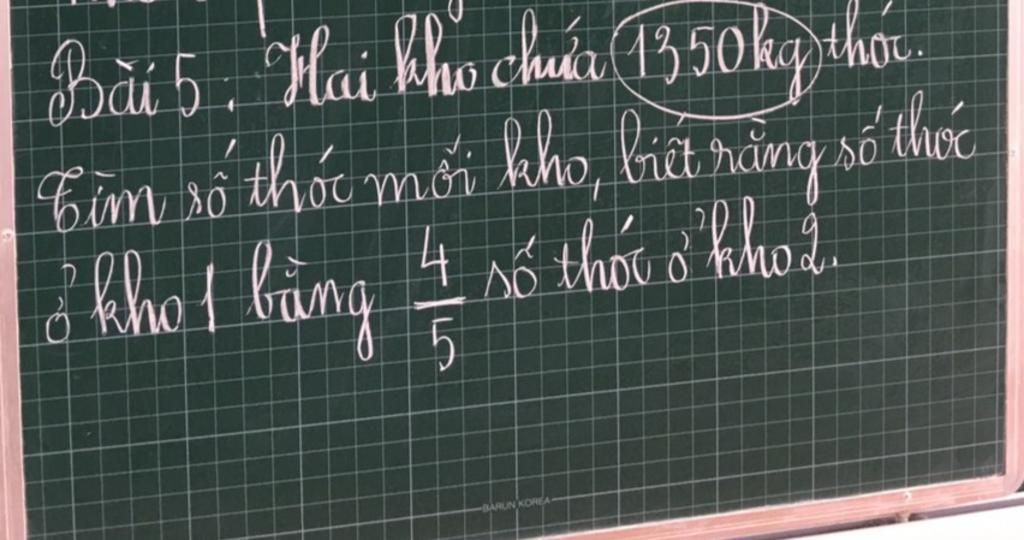 Bài 5: Hai kho chứa 1350kg thóc.
Tìm số thóc mỗi kho, biết rằng số thóc
ở kho 1 bằng 4/5 số thóc ở kho 2.
BARUN KOREA